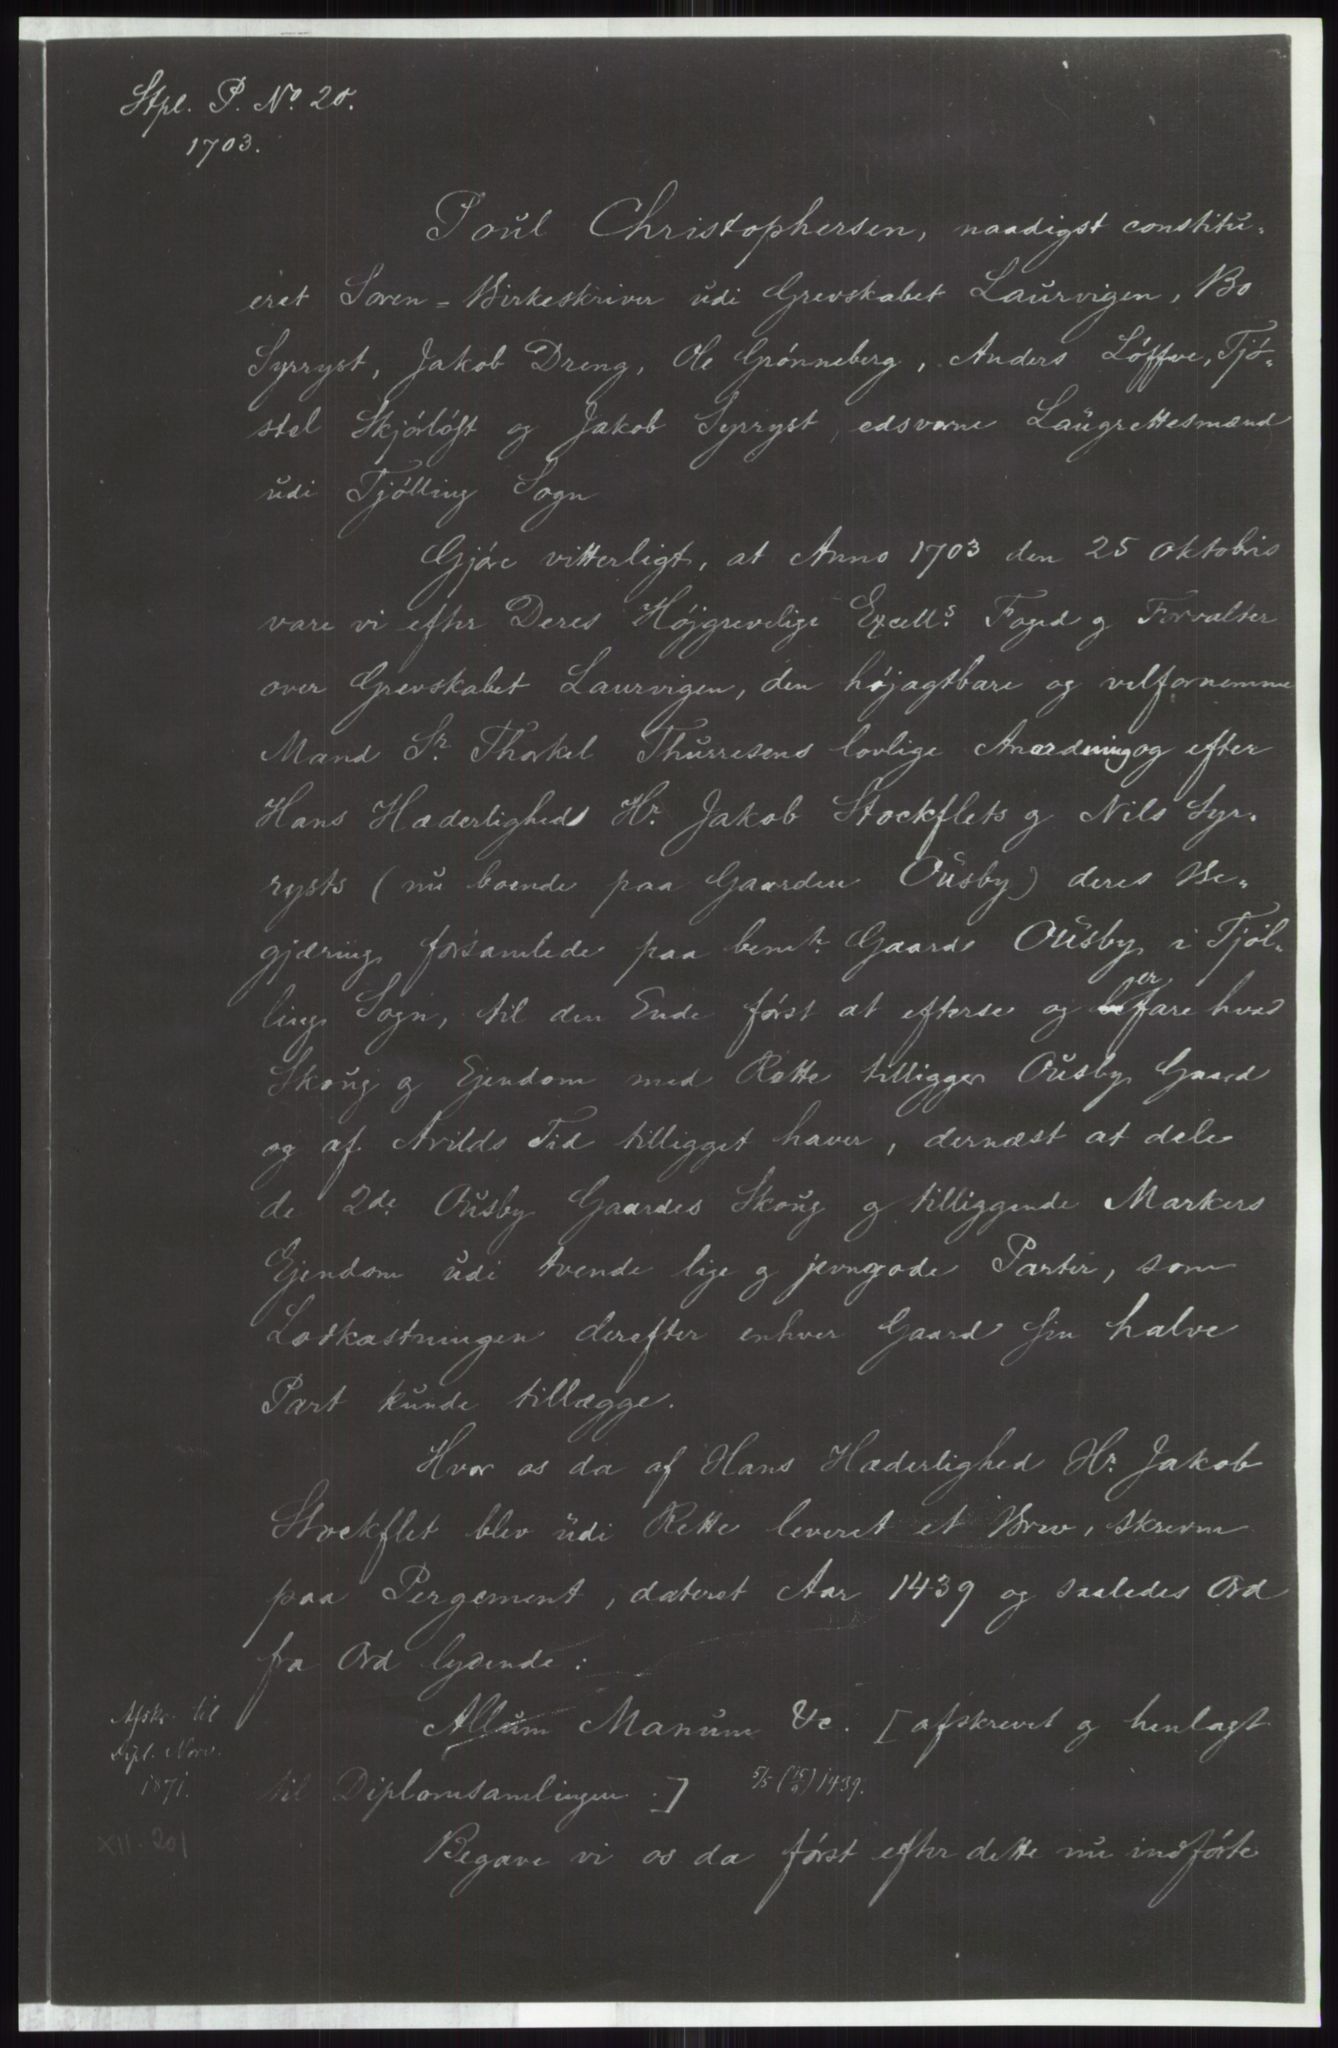 Stpl. P. No. 20.
1703.
Poul Christophersen, naadigst constitu-
eret Soren-Birkeskriver udi Grevskabet Laurvigen, Bo
Syrryst, Jakob Dreng, Ole Grønneberg, Anders Løffve, Tjø-
stel Skjørløst og Jakob Syrryst, edsvorne Laugrettesmænd
udi Tjølling Sogn
Gjøre vitterligt, at Anno 1703 den 25 oktobris
vare vi efter Deres Højgrevelige Excells. Foged og Forvalter
over Grevskabet Laurvigen, den højagtbare og velfornemme
Mand Sr. Thorkel Thurresens lovlige Anordning og efter
Hans Hæderligheds Hr. Jakob Stockflets og Nils Syr-
rysts (nu boende paa Gaarden Ousby) deres Be-
gjæring forsamlede paa bemte. Gaard Ousby i Tjøl-
ling Sogn, til den Ende først at efterse og erfare hvad
Skoug og Ejendom med Rette tilligger Ousby Gaard
og af Arilds Tid tilligget haver, dernæst at dele
de 2de Ousby Gaardes Skoug og tilliggende Markers
Ejendom udi tvende lige og jevngode Parter, som
Lodkastningen derefter enhver Gaard sin halve
Part kunde tillægge.
Hvor os da af Hans Hæderlighed Hr. Jakob
Stockflet blev udi Rette leveret et Brev, skreven
paa Pergement, dateret Aar 1439 og saaledes Ord
fra Ord lydende:
Afskr. til
Dipl. Norv.
1871.
XII. 201
Allum Manum &c. [afskrevet og henlagt
til Diplomsamlingen.] 5/5 (15/9) 1439.
Begave vi os da først efter dette nu indførte